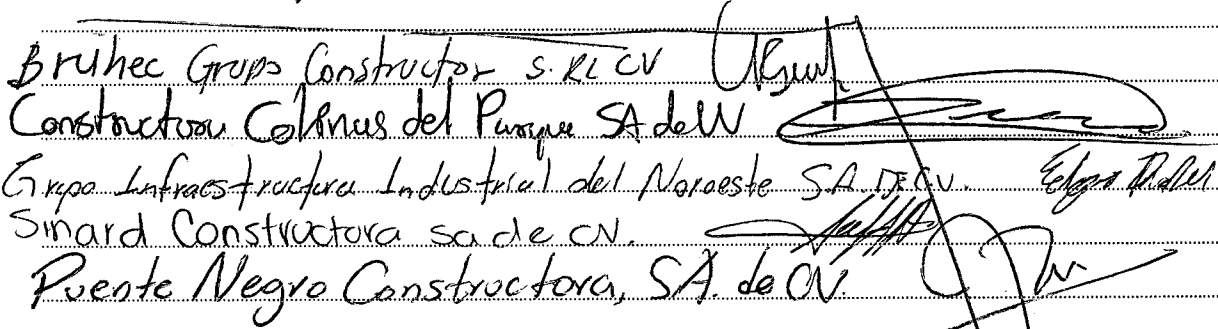 Bruhec Grupo Constructor S. RL CV
Constructora Colinas del Parque SA de CV
Grupo Infraestructura Industrial del Noroeste S.A. DE CV.
Sinard Constructora sa de CV.
Puente Negro Constructora, S.A. de CV.